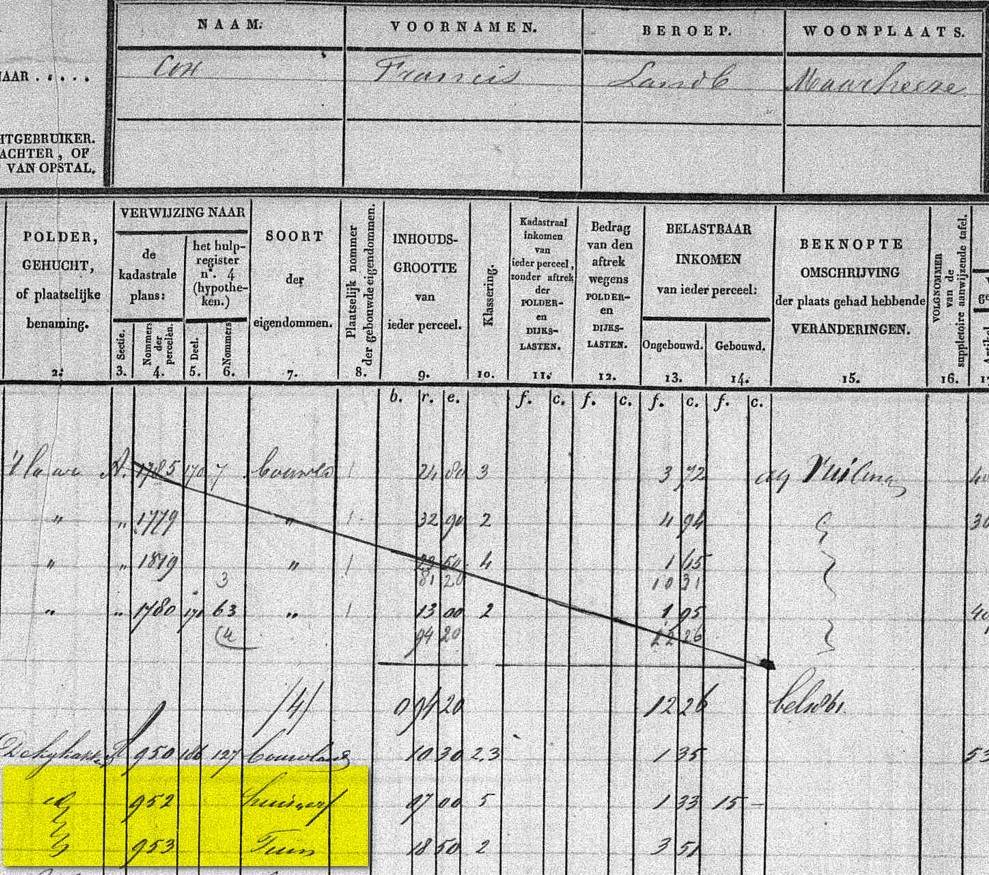 NAAM. VOORNAMEN. BEROEP. WOONPLAATS.
NAAR . . . . .
Cox Francis Landb Maarheeze
HTGEBRUIKER.
ACHTER, OF
VAN OPSTAL.
POLDER,
GEHUCHT,
of plaatselijke
benaming.
2.
VERWIJZING NAAR
de
kadastrale
plans:
het hulp-
register
n°. 4
(hypothe-
ken.)
Sectie.
3.
Nommers
der
perceelen.
4.
Deel.
5.
Nommers
6.
SOORT
der
eigendommen.
7.
Plaatselijk nommer
der gebouwde eigendommen.
8.
INHOUDS-
GROOTTE
van
ieder perceel.
9.
Klassering.
10.
Kadastraal
inkomen
van
ieder perceel,
zonder aftrek
der
POLDER-
en
DIJKS-
LASTEN.
11.
Bedrag
van den
aftrek
wegens
POLDER-
en
DIJKS-
LASTEN.
12.
BELASTBAAR
INKOMEN
van ieder perceel:
Ongebouwd.
13.
Gebouwd.
14.
BEKNOPTE
OMSCHRIJVING
der plaats gehad hebbende
VERANDERINGEN.
15.
VOLGNOMMER
van de
suppletoire aanwijzende tafel.
16.
b. r. e. f. c. f. c. f. c. f. c.
A. 1785 170 7 bouwld 1 24 80 3 3 72 Ruiling
" " 1779 " 1 32 90 2 4 94
" " 1819 " 1 23 50 4 1 65
3 81 20 10 31
" " 1780 171 63 " 1 13 00 2 1 95
(4 94 20 12 26
/4/ 0 94 20 12 26
950 186 127 bouwland 10 30 2.3 1 35 53
952 huis erf 07 00 5 1 33 15 –
953 Tuin 18 50 2 3 51